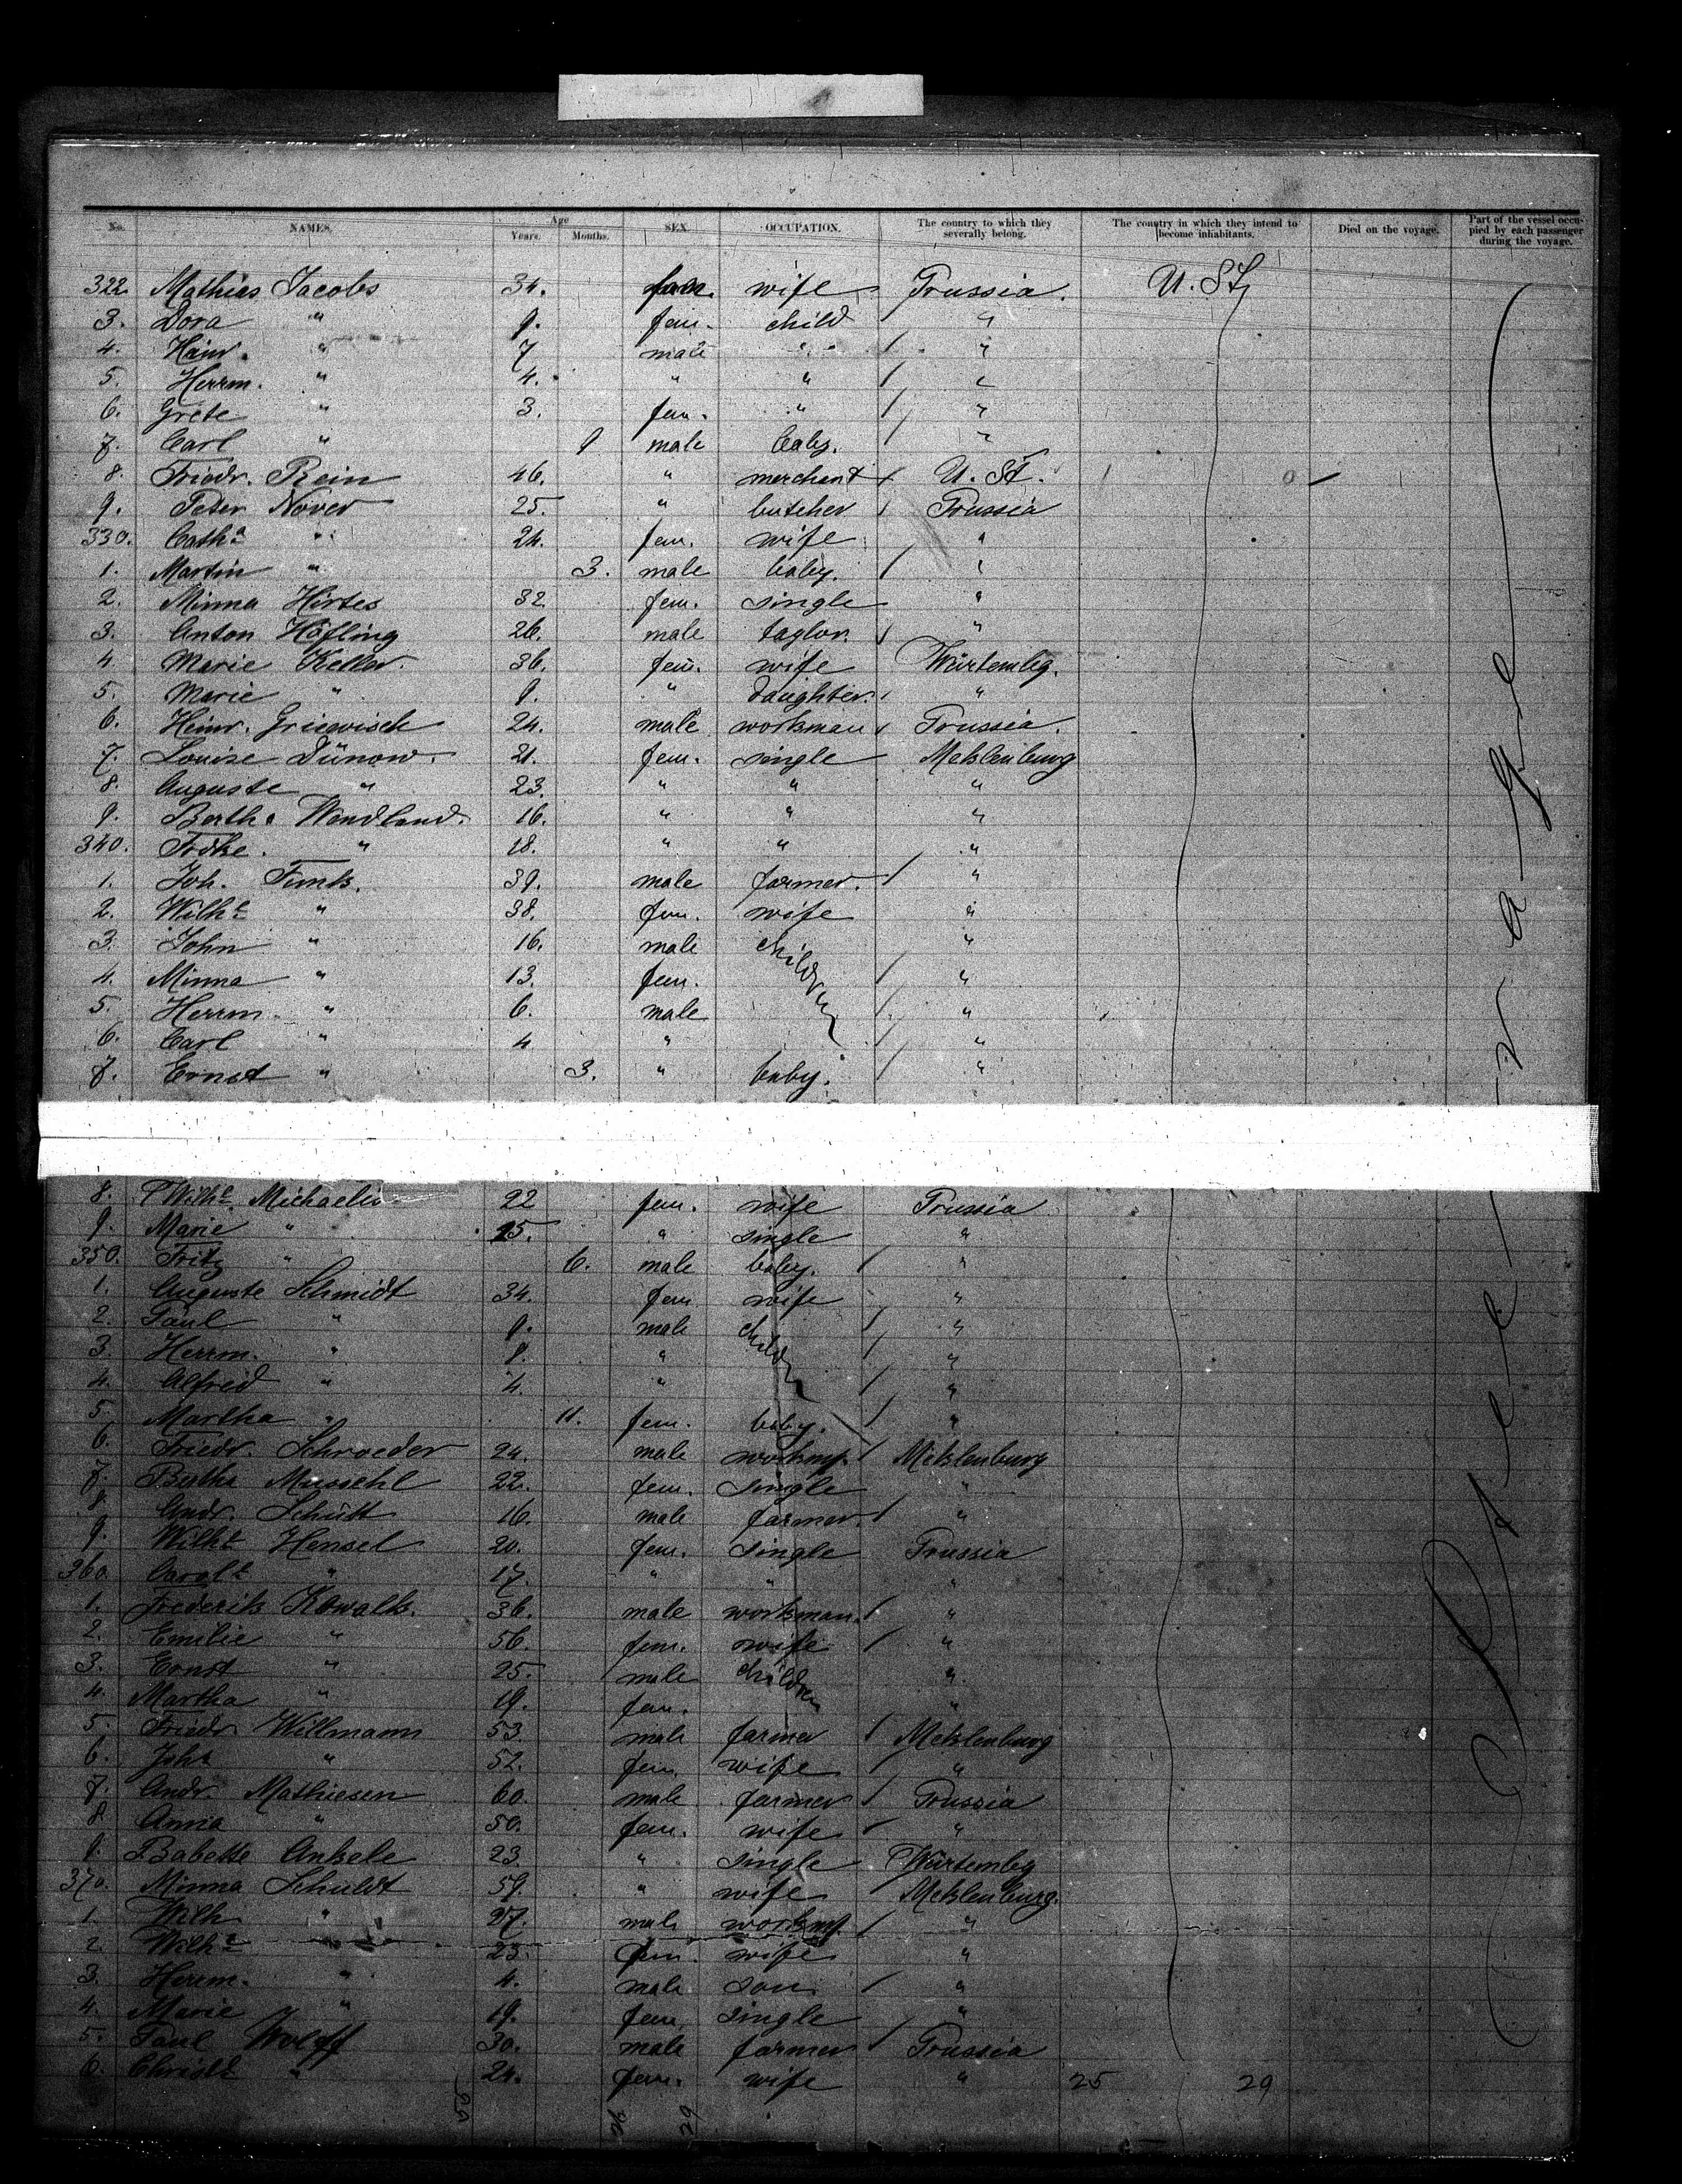 No. NAMES. Age Years. Months. SEX. OCCUPATION. The country to which they severally belong. The country in which they intend to become inhabitants. Died on the voyage. Part of the vessel occupied by each passenger during the voyage.
322. Mathias Jacobs 34. fem. wife Prussia. U. St.
3. Dora " 9. fem. child "
4. Heinr. " 7 male " "
5. Herrm. " 4. " " "
6. Grete " 3. fem. " "
7. Carl " 9 male baby. "
8. Friedr. Rein 46. " merchant U. St.
9. Peter Nover 25. " butcher Prussia
330. Cath.a " 24. fem. wife "
1. Martin " 3. male baby. "
2. Minna Hirtes 32 fem. single "
3. Anton Höfling 26. male taylor. "
4. Marie Keller. 36. fem. wife Würtembg.
5. Marie " 9. " daughter. "
6. Heinr. Griewisch 24. male workman Prussia.
7. Louise Dünow. 21. fem. single Meklenburg
8. Auguste " 23. " " "
9. Bertha Wendland. 16. " " "
340. Fr­dke. " 18. " " "
1. Joh. Funk. 39. male farmer. "
2. Wilh.e " 38. fem. wife "
3. John " 16. male children "
4. Minna " 13. fem. "
5. Herrm. " 6. male "
6. Carl " 4 " "
7. Ernst " 3. " baby. "
8. Wilh.e Michaelis 22 fem. wife Prussia
9. Marie " 25. " single "
350. Fritz " 6. male baby. "
1. Auguste Schmidt 34. fem wife "
2. Paul " 9. male children "
3. Herrm. " 8. " "
4. Alfred " 4. " "
5. Martha " 11. fem. baby. "
6. Friedr. Schroeder 24. male workm. Meklenburg
7. Bertha Musschl 22. fem. single "
8. Andr. Schütt 16. male farmer. "
9. Wilh.e Hensel 20. fem. single Prussia
360. Carol.e " 17. " " "
1. Frederik Kowalk. 36. male workman. "
2. Emilie " 56. fem. wife "
3. Ernst " 25. male children "
4. Martha " 19. fem. "
5. Friedr. Willmann 53. male farmer Meklenburg
6. Joh.a " 52. fem. wife "
7. Andr. Mathiesen 60. male farmer Prussia
8. Anna " 50. fem. wife "
9. Babette Ankele 23. " single Würtembg
370. Minna Schuldt 59. " wife Meklenburg.
1. Wilh. " 27. male workm. "
2. Wilh.e " 23. fem. wife "
3. Herrm. " 4. male son "
4. Marie " 19. fem. single "
5. Paul Wolff 30. male farmer Prussia
6. Christ.e " 24. fem. wife " 25 29
Steerage